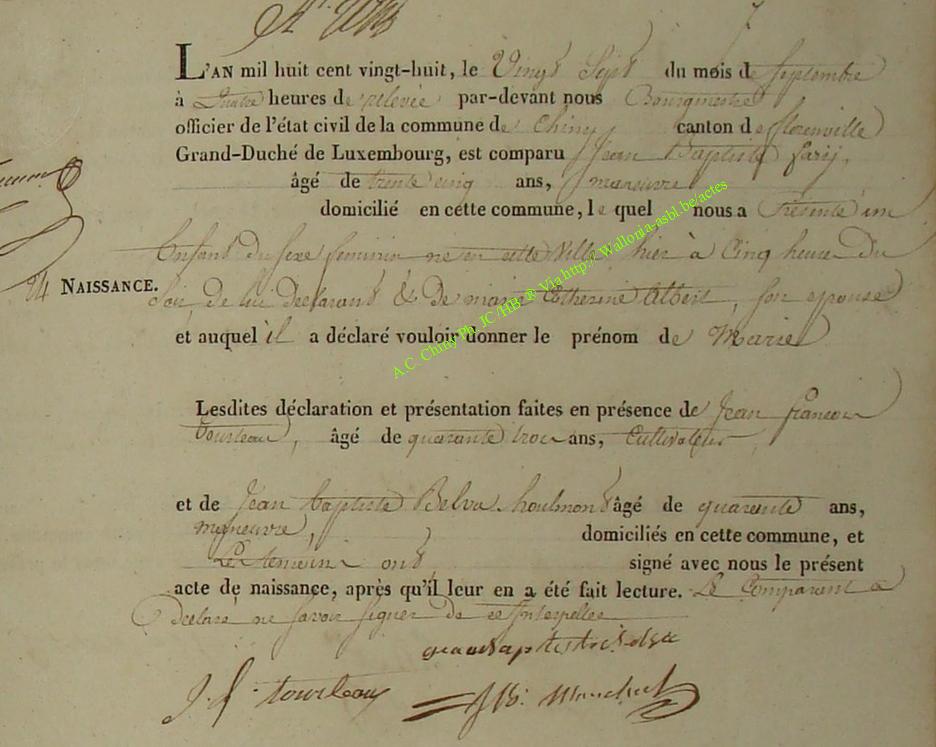 L'AN mil huit cent vingt-huit, le Vingt Sept du mois de Septembre
à Quatre heures de relevée par-devant nous Bourgmestre
officier de l'état civil de la commune de Chiny canton de florenville
Grand-Duché de Luxembourg, est comparu Jean Baptiste
âgé de trente cinq ans, maneuvre
domicilié en cette commune, le quel nous a Présenté un
Enfant du sexe feminin né en cette Ville hier à Cinq heure Du
24 NAISSANCE. Soir, de lui declarant & de marie Catherine Albert, son epouse
et auquel il a déclaré vouloir donner le prénom de Marie
Lesdites déclaration et présentation faites en présence de Jean francois
tourteau, âgé de quarante trois ans, Cultivateur
et de Jean baptiste âgé de quarente ans,
maneuvre, domiciliés en cette commune, et
Les temoins ont signé avec nous le présent
acte de naissance, après qu'il leur en a été fait lecture. Le Comparent a
declaré ne savoir signer de ce Interpellé
J f tourteau
A.C. Chiny Ph. JC /HB ® Via http:// Wallonia-asbl.be/actes